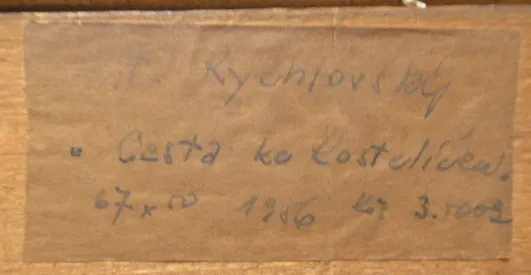 Rychlovský
Cesta ke kostelíčku.
67x50 1956 Kčs